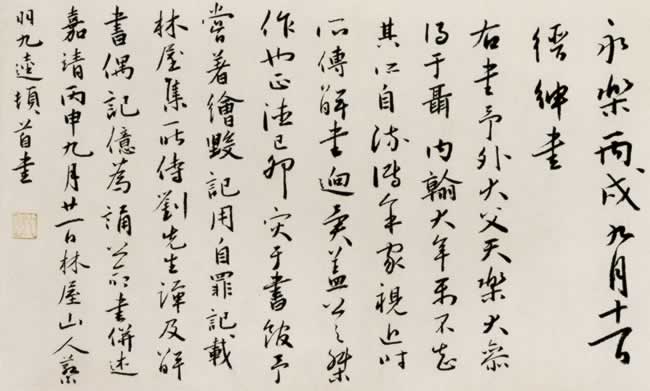 永樂丙戌九月十一日
縉紳書
右書予外大父天樂大參
得于聶內翰大年不知
其所自家視近時
所傳解書迥異蓋公之傑
作也正德己卯灾于書館予
嘗著繪毀記用自罪記載
林屋集侍劉先生譚及解
書偶記憶為誦之命書併述
嘉靖丙申九月廿一日林屋山人蔡
羽九逵頓首書